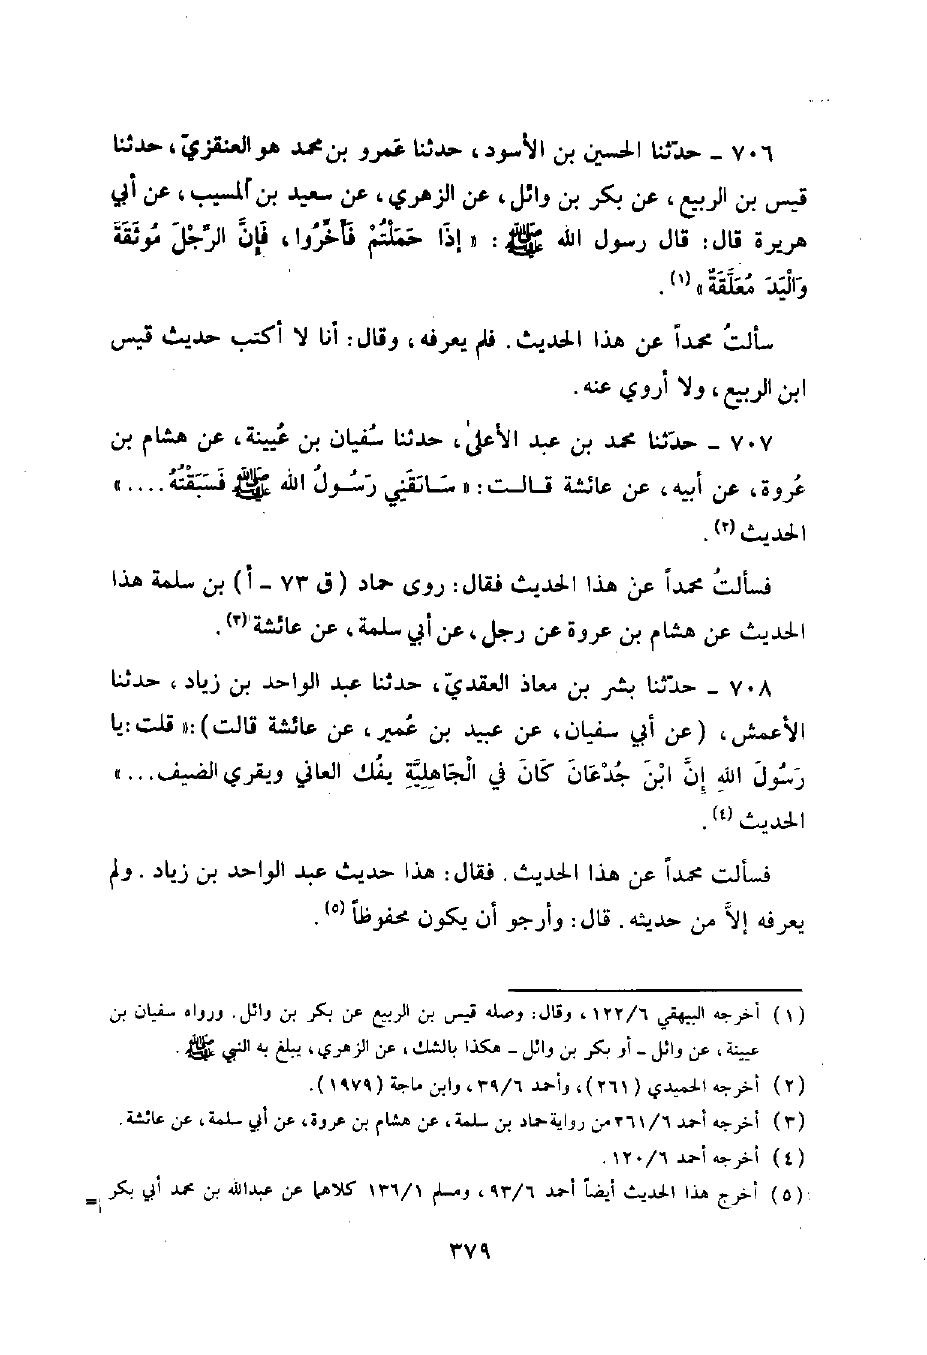 ٧٠٦ ـ حدّثنا الحسين بن الأسود، حدثنا عَمرو بن محمد هو العنقزيّ، حدثنا
قيس بن الربيع، عن بكر بن وائل، عن الزهري، عن سعيد بن المسيب، عن أبي
هريرة قال: قال رسول الله ﷺ: «إذَا حَمَلْتُمْ فَأَخِّرُوا، فَإِنَّ الرِّجْلَ مُوثَقَةٌ
وَالْيَدَ مُعَلَّقَةٌ»(١).
سألتُ محمداً عن هذا الحديث. فلم يعرفه، وقال: أنا لا أكتب حديث قيس
ابن الربيع، ولا أروي عنه.
٧٠٧ ـ حدّثنا محمد بن عبد الأعلى، حدثنا سُفيان بن عُيينة، عن هشام بن
عُروة، عن أبيه، عن عائشة قـالـت: «سَـابَقَنِي رَسُـولُ الله ﷺ فَسَبَقْتُهُ....»
الحديث(٢).
فسألتُ محمداً عن هذا الحديث فقال: روى حماد (ق ٧٣ ـ أ) بن سلمة هذا
الحديث عن هشام بن عروة عن رجل، عن أبي سلمة، عن عائشة(٣).
٧٠٨ ـ حدّثنا بشر بن معاذ العقديّ، حدثنا عبد الواحد بن زياد، حدثنا
الأعمش، (عن أبي سفيان، عن عبيد بن عُمير، عن عائشة قالت):«قلت:يا
رَسُولَ اللهِ إِنَّ ابْنَ جُدْعَانَ كَانَ فِي الْجَاهِلِيَّةِ يفُك العاني ويقري الضيف...»
الحديث(٤).
فسألت محمداً عن هذا الحديث. فقال: هذا حديث عبد الواحد بن زياد. ولم
يعرفه إلاَّ من حديثه. قال: وأرجو أن يكون محفوظاً(٥).
(١) أخرجه البيهقي ١٢٢/٦، وقال: وصله قيس بن الربيع عن بكر بن وائل. ورواه سفيان بن
عيينة، عن وائل ـ أو بكر بن وائل ـ هكذا بالشك، عن الزهري، يبلغ به النبي ﷺ.
(٢) أخرجه الحميدي (٢٦١)، وأحمد ٣٩/٦، وابن ماجة (١٩٧٩).
(٣) أخرجه أحمد ٢٦١/٦ من رواية حماد بن سلمة، عن هشام بن عروة، عن أبي سلمة، عن عائشة.
(٤) أخرجه أحمد ١٢٠/٦.
(٥) أخرج هذا الحديث أيضاً أحمد ٩٣/٦، ومسلم ١٣٦/١ كلاهما عن عبدالله بن محمد أبي بكر =
٣٧٩